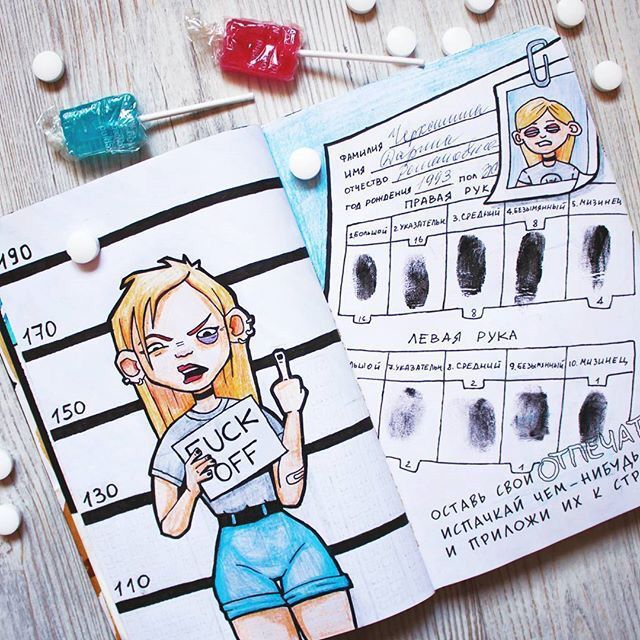 190
170
150
130
110
FUCK
OFF
ФАМИЛИЯ
ИМЯ Дарина
ОТЧЕСТВО Романовна
ГОД РОЖДЕНИЯ 1993 ПОЛ
ПРАВАЯ РУКА
1.БОЛЬШОЙ 2.УКАЗАТЕЛЬН 3.СРЕДНИЙ 4.БЕЗЫМЯННЫЙ 5.МИЗИНЕЦ
16 8
16 8 4
ЛЕВАЯ РУКА
ОЛЬШОЙ 7.УКАЗАТЕЛЬН 8.СРЕДНИЙ 9.БЕЗЫМЯННЫЙ 10.МИЗИНЕЦ
2 1
2 1
ОСТАВЬ СВОЙ ОТПЕЧАТ
ИСПАЧКАЙ ЧЕМ-НИБУДЬ
И ПРИЛОЖИ ИХ К СТР